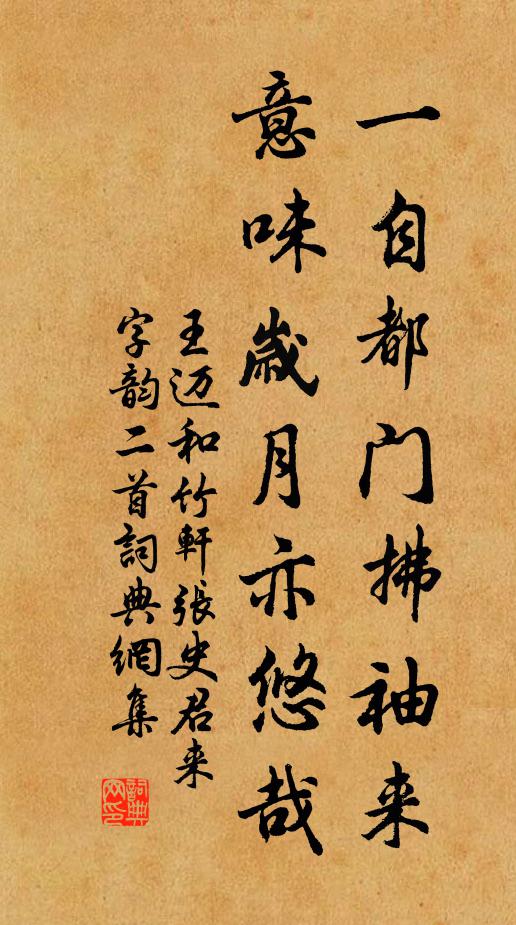 一自都门拂袖来
意味歲月亦悠哉
王迈和竹軒張史君来
字韵二首詞典網集
詞典
网印